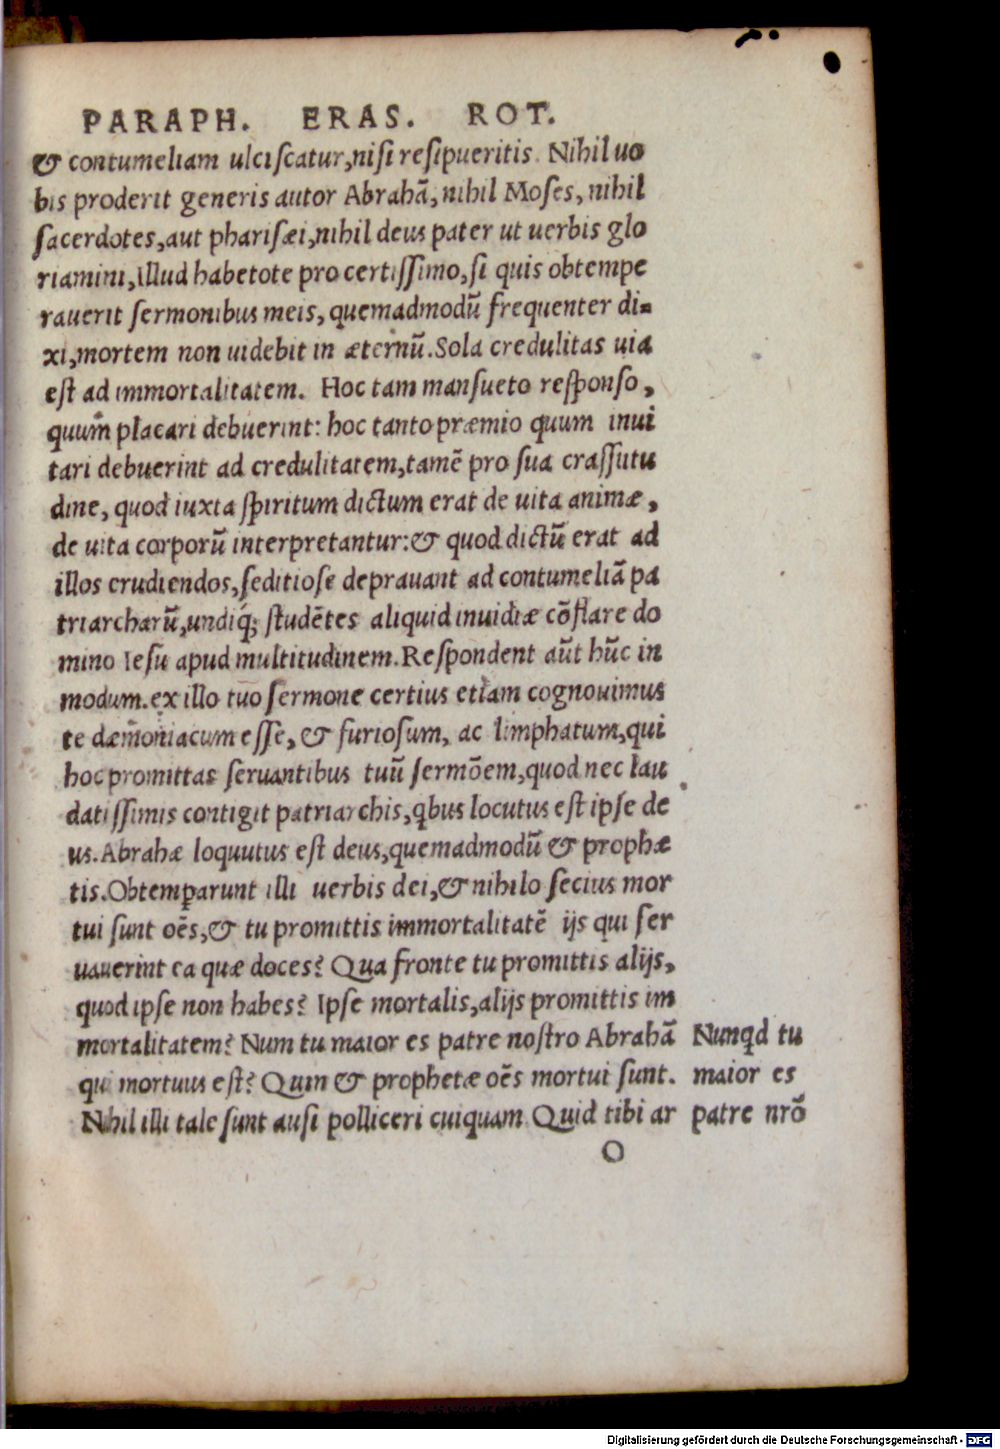 PARAPH. ERAS. ROT.
& contumeliam ulciscatur, nisi resipueritis. Nihil uo
bis proderit generis autor Abrahā, nihil Moses, nihil
sacerdotes, aut pharisæi, nihil deus pater ut uerbis glo
riamini, illud habetote pro certissimo, si quis obtempe
rauerit sermonibus meis, quemadmodū frequenter di=
xi, mortem non uidebit in æternū. Sola credulitas uia
est ad immortalitatem. Hoc tam mansueto responso,
quum placari debuerint: hoc tanto præmio quum inui
tari debuerint ad credulitatem, tamē pro sua crassitu
dine, quod iuxta spiritum dictum erat de uita animæ,
de uita corporū interpretantur: & quod dictū erat ad
illos erudiendos, seditiose deprauant ad contumeliā pa
triarcharū, undiq́; studētes aliquid inuidiæ cōflare do
mino Iesu apud multitudinem. Respondent aūt hūc in
modum. ex illo tuo sermone certius etiam cognouimus
te dæmoniacum esse, & furiosum, ac limphatum, qui
hoc promittas seruantibus tuū sermōem, quod nec lau
datissimis contigit patriarchis, qbus locutus est ipse de
us. Abrahæ loquutus est deus, quemadmodū & prophæ
tis. Obtemꝑarunt illi uerbis dei, & nihilo secius mor
tui sunt oēs, & tu promittis immortalitatē ijs qui ser
uauerint ea quæ doces? Qua fronte tu promittis alijs,
quod ipse non habes? Ipse mortalis, alijs promittis im
mortalitatem? Num tu maior es patre nostro Abrahā
qui mortuus est? Quin & prophetæ oēs mortui sunt.
Nihil illi tale sunt ausi polliceri cuiquam Quid tibi ar
Nunqd tu
maior es
patre nrō
O
Digitalisierung gefördert durch die Deutsche Forschungsgemeinschaft - DFG